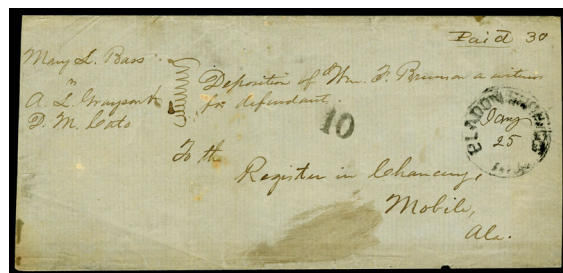 Paid 30
Mary L. Bass
vs
A. L. Grayson &
D. M. Cato
Deposition of Wm. F. Brunson a witness
for defendant.
10
BLADON SPRINGS
Jany
25
To the
Register in Chancery,
Mobile,
Ala.